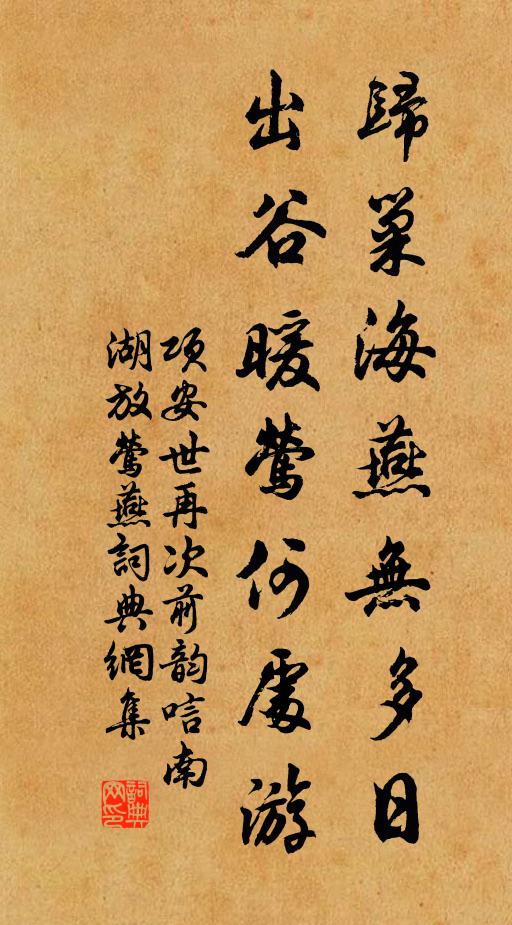 歸巢海燕無多日
出谷暖鶯何處游
項安世再次前韵唁南
湖放鶯燕詞典網集
詞典
网印